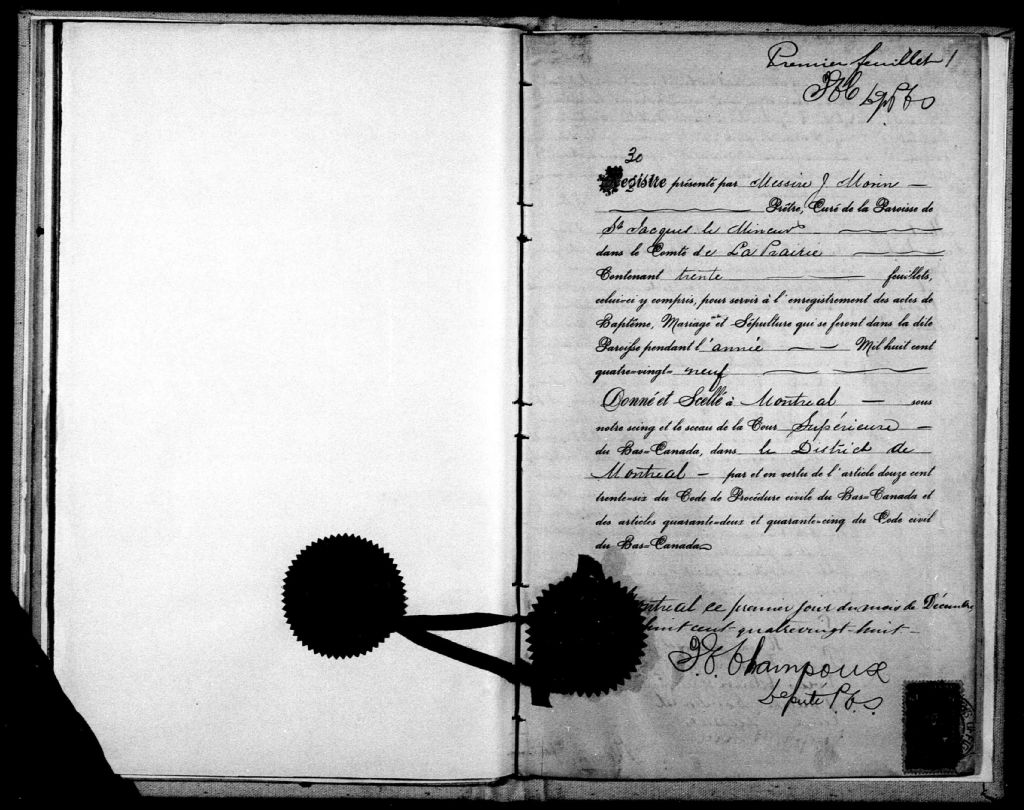 Premier feuillet 1
30
Registre présenté par Messire J Morin —
Prêtre, Curé de la Paroisse de
St Jacques le Mineur
dans le Comté de La Prairie
Contenant trente feuillets,
celui-ci y compris, pour servir à l'enregistrement des actes de
Baptême, Mariage et Sépulture qui se feront dans la dite
Paroisse pendant l'année — — Mil huit cent
quatre-vingt- neuf
Donné et Scellé à Montreal — sous
notre seing et le sceau de la Cour Supérieure —
du Bas-Canada, dans le District de
Montreal — par et en vertu de l'article douze cent
trente-six du Code de Procédure civile du Bas-Canada et
des articles quarante-deux et quarante-cinq du Code civil
du Bas-Canada
ontreal ce premier jour du mois de Décembre
huit cent quatrevingt-huit —
Champoux
Député P.C.S.